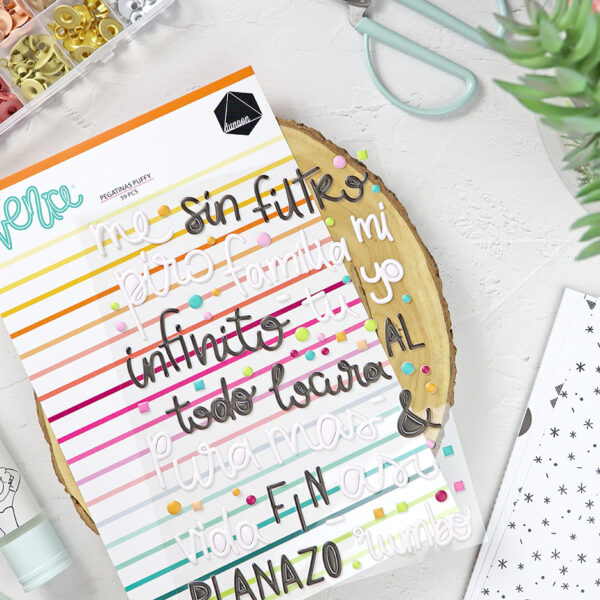 dunaon
PEGATINAS PUFFY
59 PCS
me sin filtro
piro familia mi
infinito tu yo
todo locura AL
Pura mas &
vida FIN asi
PLANAZO rumbo